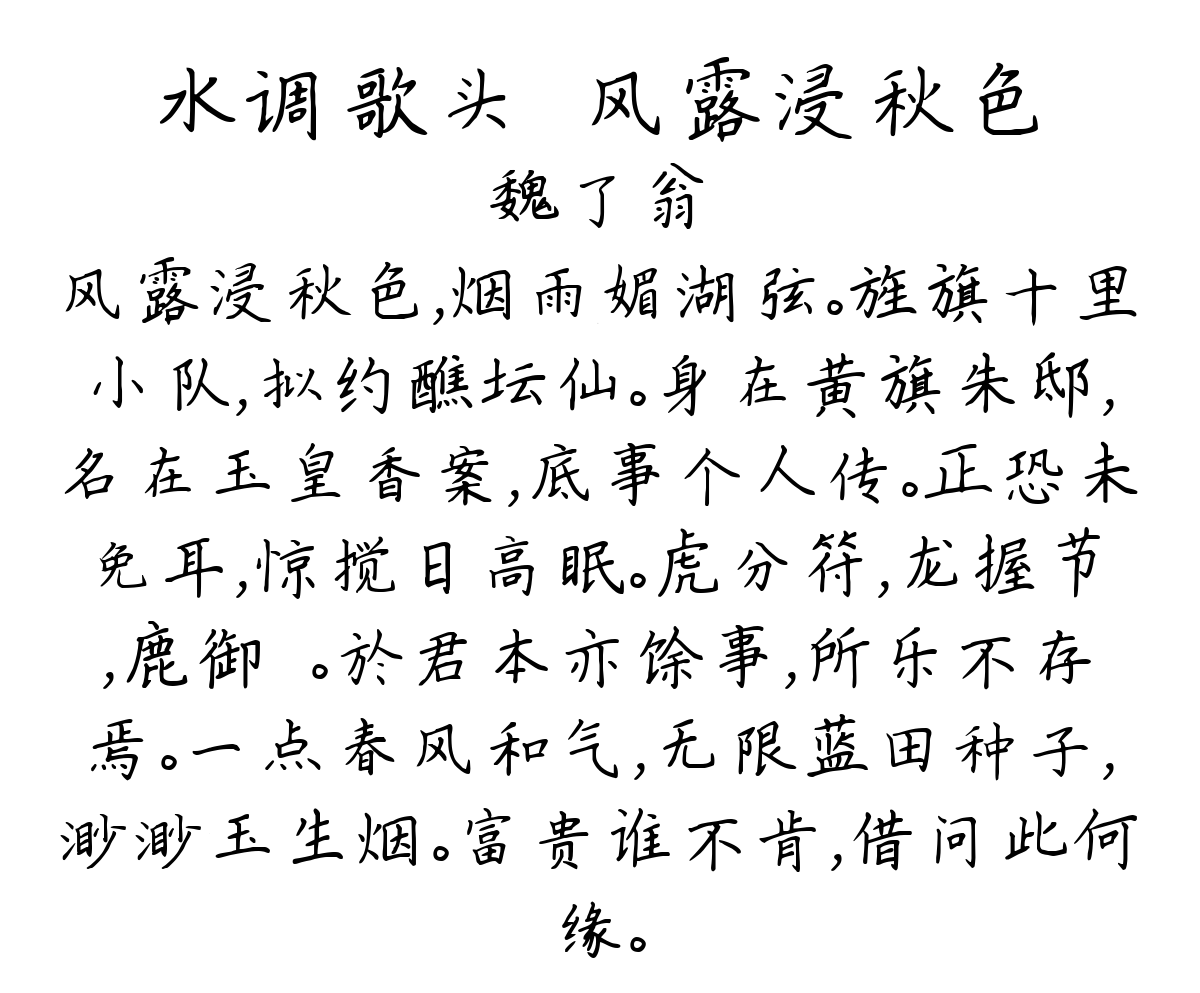 水调歌头 风露浸秋色
魏了翁
风露浸秋色,烟雨媚湖弦。旌旗十里
小队,拟约醮坛仙。身在黄旗朱邸,
名在玉皇香案,底事个人传。正恐未
免耳,惊搅日高眠。虎分符,龙握节
,鹿御 。於君本亦馀事,所乐不存
焉。一点春风和气,无限蓝田种子,
渺渺玉生烟。富贵谁不肯,借问此何
缘。